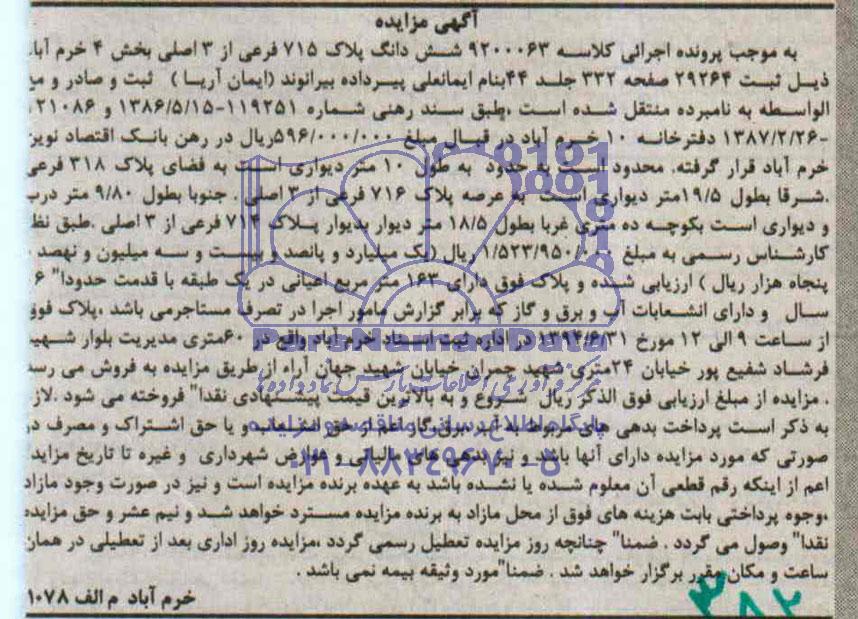 آگهی مزایده
به موجب پرونده اجرائی کلاسه ۹۲۰۰۰۶۳ شش دانگ پلاک ۷۱۵ فرعی از ۳ اصلی بخش ۴ خرم آباد
ذیل ثبت ۲۹۲۶۴ صفحه ۳۳۲ جلد ۴۴بنام ایمانعلی پیرداده بیرانوند (ایمان آریا ) ثبت و صادر و مع
الواسطه به نامبرده منتقل شده است ،طبق سند رهنی شماره ۱۱۹۲۵۱-۱۳۸۶/۵/۱۵ و ۲۱۰۸۶
-۱۳۸۷/۲/۲۶ دفترخانه ۱۰ خرم آباد در قبال مبلغ ۵۹۶/۰۰۰/۰۰۰ریال در رهن بانک اقتصاد نوین
خرم آباد قرار گرفته. محدود است به حدود به طول ۱۰ متر دیواری است به فضای پلاک ۳۱۸ فرعی
.شرقا بطول ۱۹/۵متر دیواری است به عرصه پلاک ۷۱۶ فرعی از ۳ اصلی . جنوبا بطول ۹/۸۰ متر درب
و دیواری است بکوچه ده متری غربا بطول ۱۸/۵ متر دیوار بدیوار پلاک ۷۱۴ فرعی از ۳ اصلی .طبق نظر
کارشناس رسمی به مبلغ ۱/۵۲۳/۹۵۰/۰۰۰ ریال (یک میلیارد و پانصد و بیست و سه میلیون و نهصد
پنجاه هزار ریال ) ارزیابی شده و پلاک فوق دارای ۱۶۳ متر مربع اعیانی در یک طبقه با قدمت حدودا" ۶
سال و دارای انشعابات آب و برق و گاز که برابر گزارش مامور اجرا در تصرف مستاجرمی باشد ،پلاک فوق
از ساعت ۹ الی ۱۲ مورخ ۱۳۹۴/۶/۳۱ در اداره ثبت اسناد خرم آباد واقع در ۶۰متری مدیریت بلوار شهید
فرشاد شفیع پور خیابان ۲۴متری شهید چمران خیابان شهید جهان آراء از طریق مزایده به فروش می رسد
. مزایده از مبلغ ارزیابی فوق الذکر ریال شروع و به بالاترین قیمت پیشنهادی نقدا" فروخته می شود .لازم
به ذکر است پرداخت بدهی های مربوط به آب ،برق،گاز اعم از حق انشعاب و یا حق اشتراک و مصرف در
صورتی که مورد مزایده دارای آنها باشد و نیز بدهی های مالیاتی و عوارض شهرداری و غیره تا تاریخ مزایده
اعم از اینکه رقم قطعی آن معلوم شده یا نشده باشد به عهده برنده مزایده است و نیز در صورت وجود مازاد
،وجوه پرداختی بابت هزینه های فوق از محل مازاد به برنده مزایده مسترد خواهد شد و نیم عشر و حق مزایده
نقدا" وصول می گردد . ضمنا" چنانچه روز مزایده تعطیل رسمی گردد ،مزایده روز اداری بعد از تعطیلی در همان
ساعت و مکان مقرر برگزار خواهد شد . ضمنا"مورد وثیقه بیمه نمی باشد .
خرم آباد م الف ۱۰۷۸
ParsNamadData
مرکز فرآوری اطلاعات پارس نماد داده ها
پایگاه اطلاع رسانی مناقصه و مزایده
۰۲۱-۸۸۳۴۹۶۷۰-۵